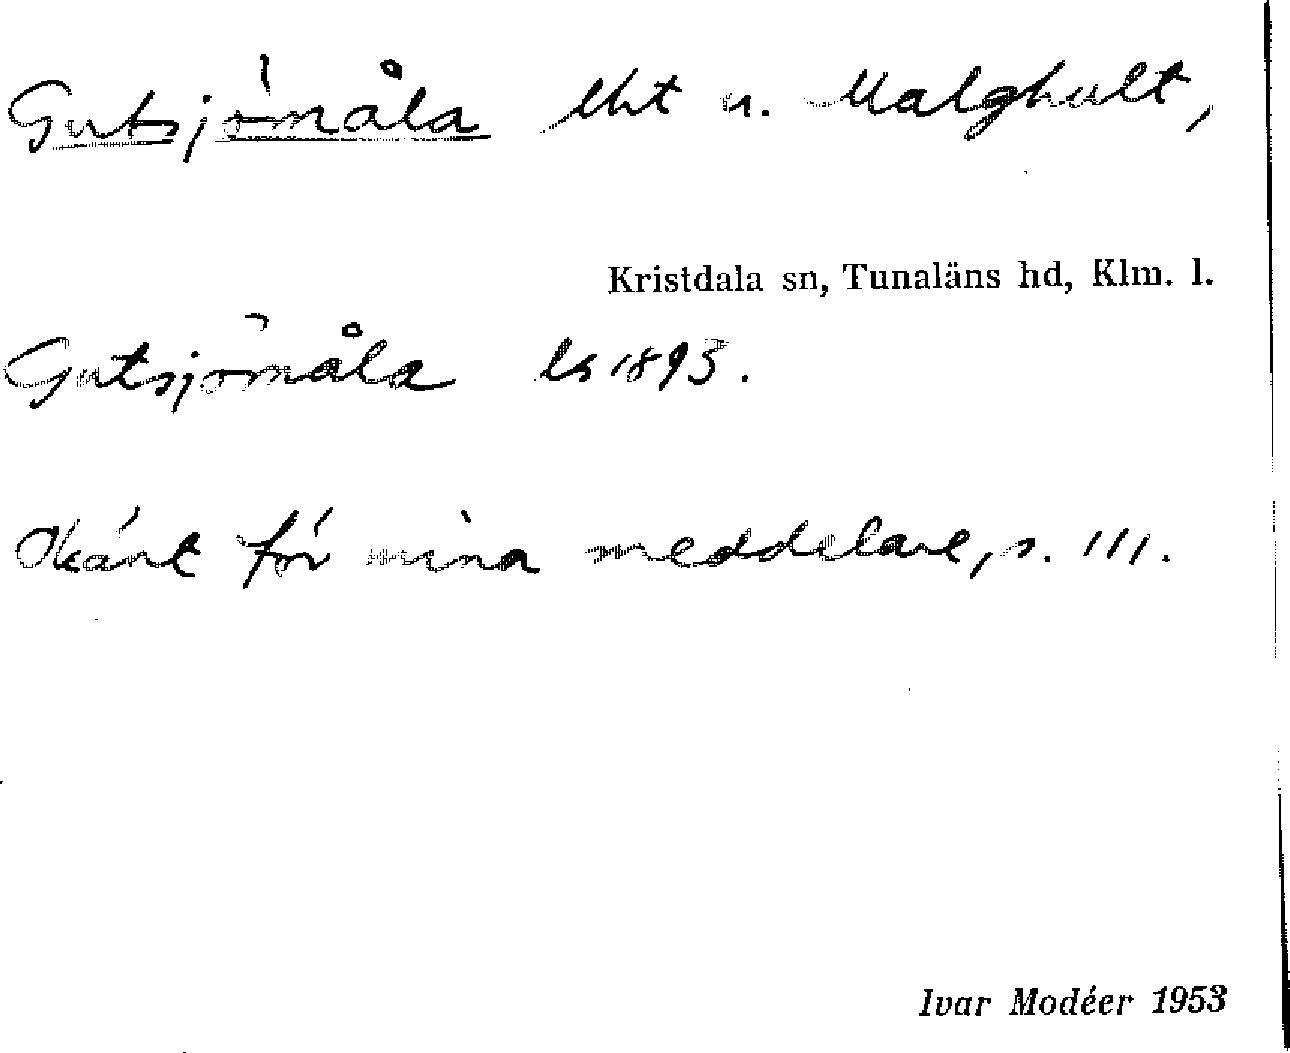 Gutsjömåla lht u. Malghult,
Kristdala sn, Tunaläns hd, Klm. l.
Gutsjömåla ls 1893.
Okänt för mina meddelare, s. 111.
Ivar Modéer 1953